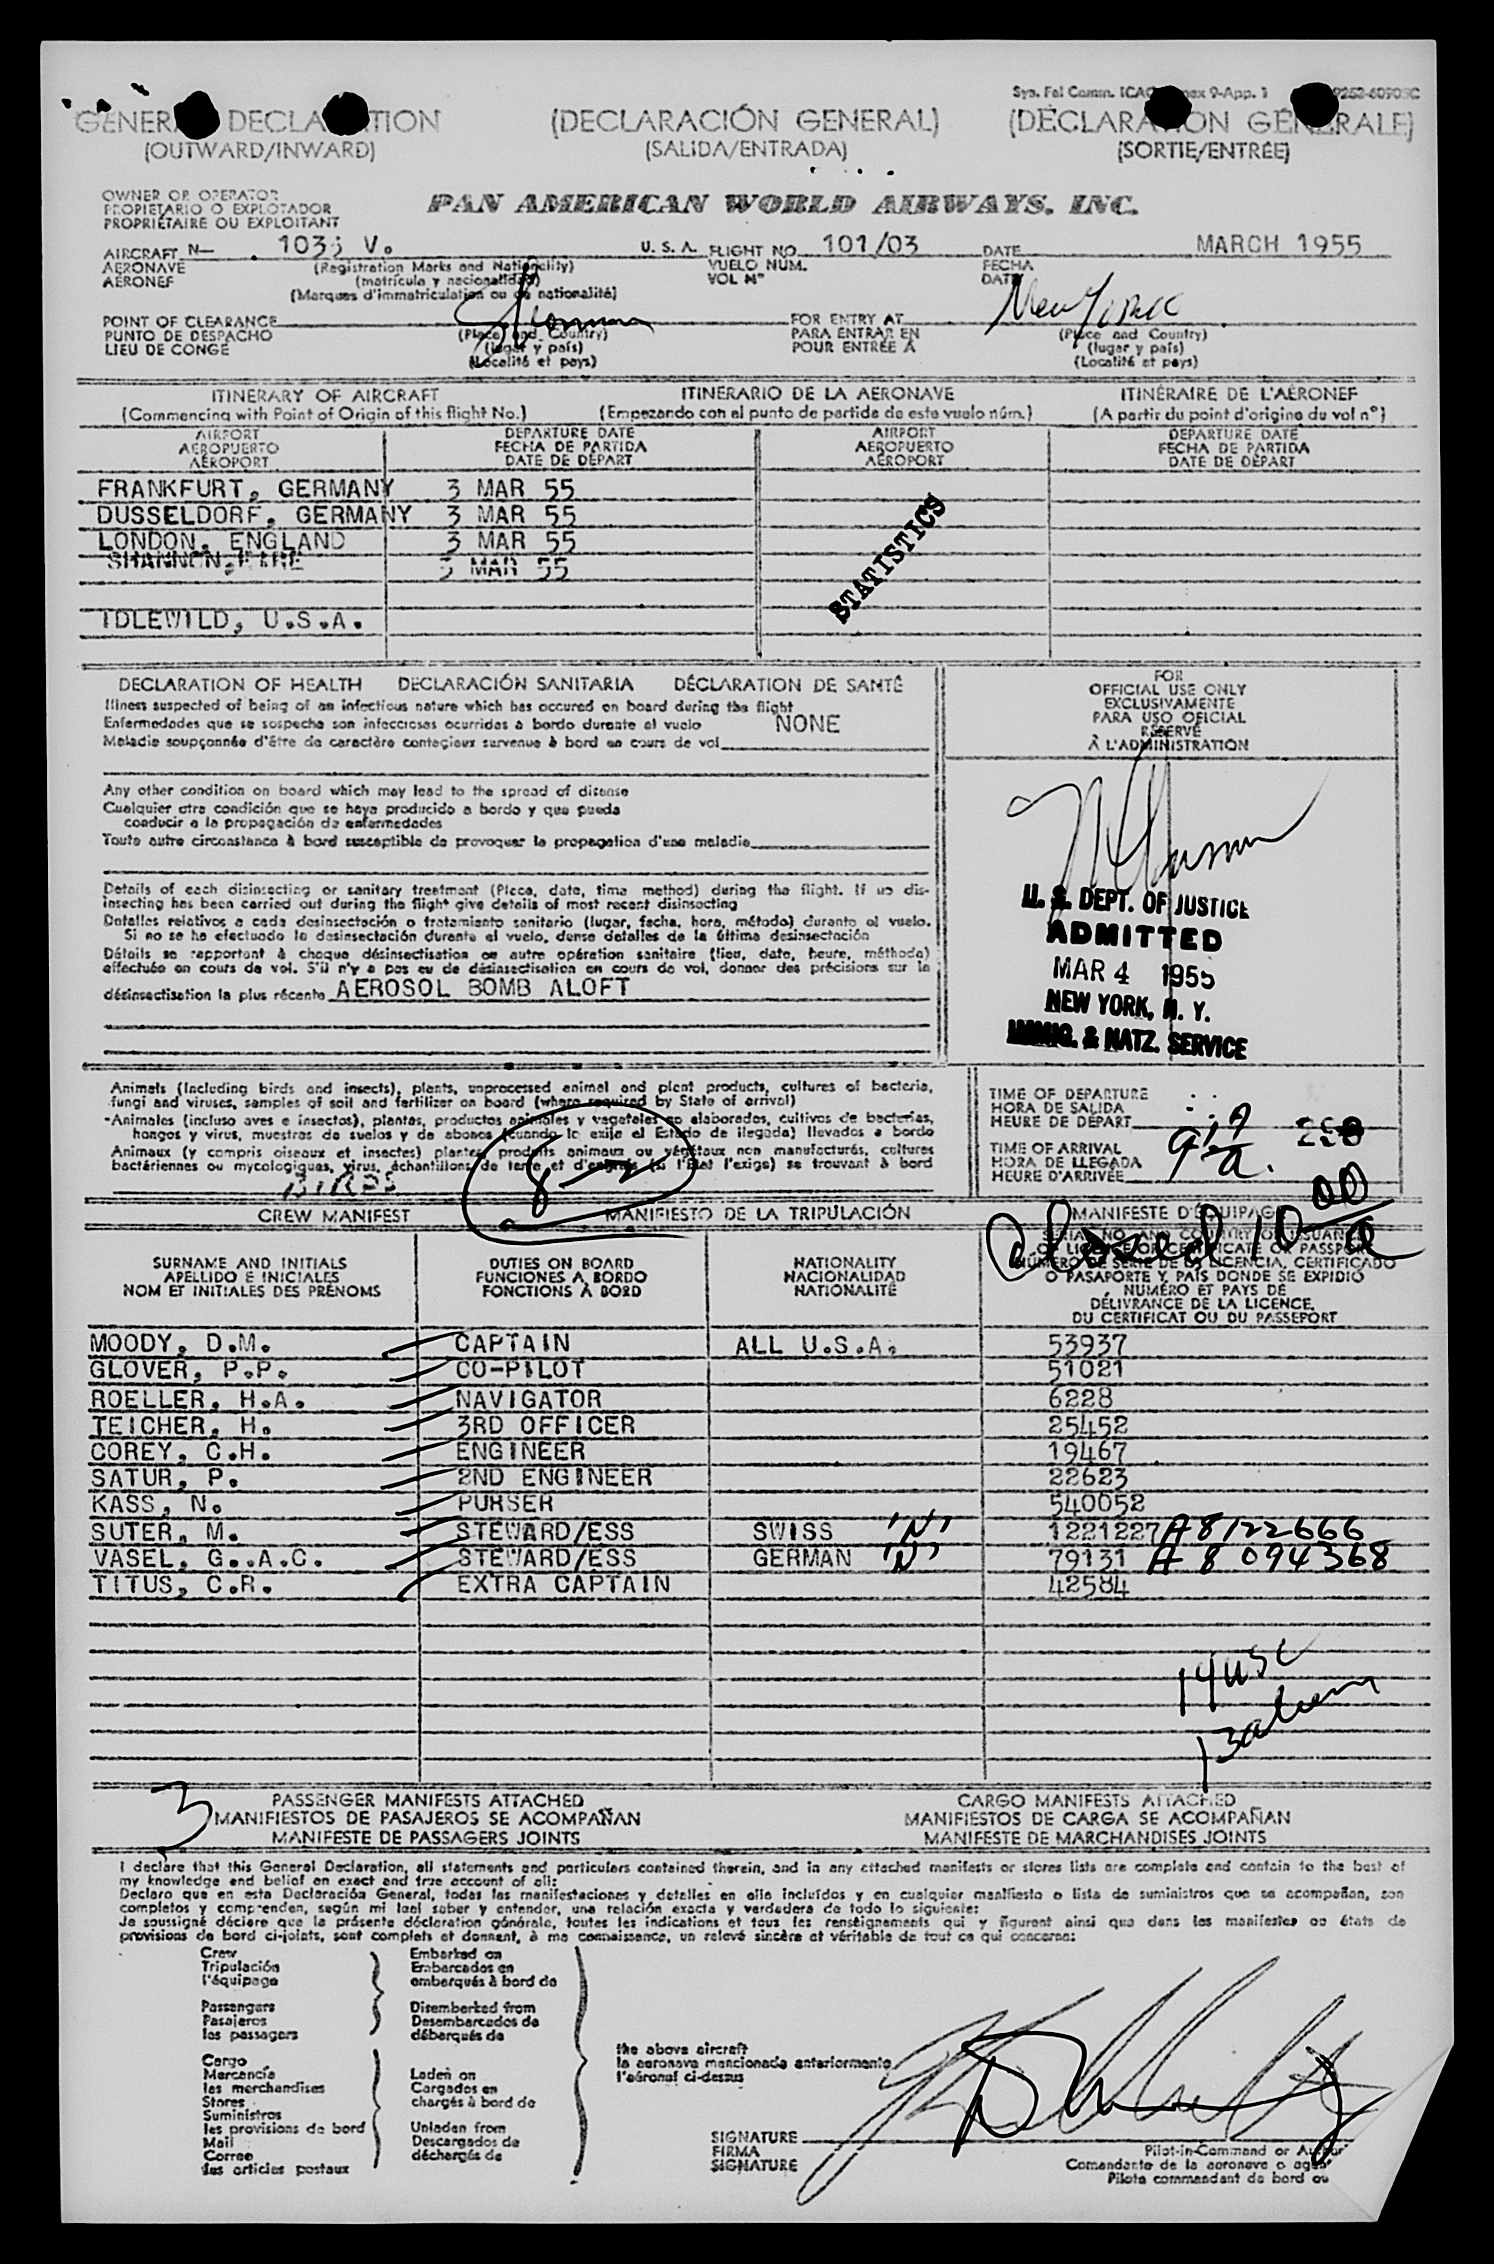 Sys. Fal Comm. ICAO Annex 9-App. 1
GENERAL DECLARATION (DECLARACIÓN GENERAL) (DÉCLARATION GÉNÉRALE)
(OUTWARD/INWARD) (SALIDA/ENTRADA) (SORTIE/ENTRÉE)
OWNER OR OPERATOR
PROPIETARIO O EXPLOTADOR
PROPRIÉTAIRE OU EXPLOITANT
PAN AMERICAN WORLD AIRWAYS, INC.
AIRCRAFT N— V. U. S. A. FLIGHT NO. 101/03 DATE MARCH 1955
AERONAVE (Registration Marks and Nationality) VUELO NÚM. FECHA
AÉRONEF (matrícula y nacionalidad) VOL Nº DATE
(Marques d'immatriculation ou de nationalité)
POINT OF CLEARANCE Shannon FOR ENTRY AT New York
PUNTO DE DESPACHO (Place and Country) PARA ENTRAR EN (Place and Country)
LIEU DE CONGÉ (lugar y país) POUR ENTRÉE À (lugar y país)
(Localité et pays) (Localité et pays)
ITINERARY OF AIRCRAFT ITINERARIO DE LA AERONAVE ITINÉRAIRE DE L'AÉRONEF
(Commencing with Point of Origin of this flight No.) (Empezando con el punto de partida de este vuelo núm.) (A partir du point d'origine du vol nº)
AIRPORT DEPARTURE DATE AIRPORT DEPARTURE DATE
AEROPUERTO FECHA DE PARTIDA AEROPUERTO FECHA DE PARTIDA
AÉROPORT DATE DE DÉPART AÉROPORT DATE DE DÉPART
FRANKFURT, GERMANY 3 MAR 55
DUSSELDORF, GERMANY 3 MAR 55
LONDON, ENGLAND 3 MAR 55
SHANNON, EIRE 3 MAR 55
STATISTICS
IDLEWILD, U.S.A.
DECLARATION OF HEALTH DECLARACIÓN SANITARIA DÉCLARATION DE SANTÉ
Illness suspected of being of an infectious nature which has occured on board during the flight
Enfermedades que se sospecha son infecciosas ocurridas a bordo durante el vuelo NONE
Maladie soupçonnée d'être de caractère contagieux survenue à bord en cours de vol
Any other condition on board which may lead to the spread of disease
Cualquier otra condición que se haya producido a bordo y que pueda
conducir a la propagación de enfermedades
Toute autre circonstance à bord susceptible de provoquer la propagation d'une maladie
Details of each disinsecting or sanitary treatment (Place, date, time method) during the flight. If no dis-
insecting has been carried out during the flight give details of most recent disinsecting
Detalles relativos a cada desinsectación o tratamiento sanitario (lugar, fecha, hora, método) durante el vuelo.
Si no se ha efectuado la desinsectación durante el vuelo, dense detalles de la última desinsectación
Détails se rapportant à chaque désinsectisation ou autre opération sanitaire (lieu, date, heure, méthode)
effectuée en cours de vol. S'il n'y a pas eu de désinsectisation en cours de vol, donner des précisions sur la
désinsectisation la plus récente AEROSOL BOMB ALOFT
FOR
OFFICIAL USE ONLY
EXCLUSIVAMENTE
PARA USO OFICIAL
RÉSERVÉ
À L'ADMINISTRATION
U. S. DEPT. OF JUSTICE
ADMITTED
MAR 4 1955
NEW YORK, N. Y.
IMMIG. & NATZ. SERVICE
Animals (Including birds and insects), plants, unprocessed animal and plant products, cultures of bacteria,
fungi and viruses, samples of soil and fertilizer on board (where required by State of arrival)
-Animales (incluso aves e insectos), plantas, productos animales y vegetales no elaborados, cultivos de bacterias,
hongos y virus, muestras de suelos y de abonos (cuando lo exija el Estado de llegada) llevados a bordo
Animaux (y compris oiseaux et insectes) plantes, produits animaux ou végétaux non manufacturés, cultures
bactériennes ou mycologiques, virus, échantillons de terre et d'engrais (si l'Etat l'exige) se trouvant à bord
BIRDS
TIME OF DEPARTURE
HORA DE SALIDA
HEURE DE DÉPART
TIME OF ARRIVAL
HORA DE LLEGADA
HEURE D'ARRIVÉE
CREW MANIFEST MANIFIESTO DE LA TRIPULACIÓN MANIFESTE D'ÉQUIPAGE
Closed 10 00/a
SURNAME AND INITIALS DUTIES ON BOARD NATIONALITY SERIAL NO. AND COUNTRY OF ISSUANCE
APELLIDO E INICIALES FUNCIONES A BORDO NACIONALIDAD OF LICENSE OR CERTIFICATE OR PASSPORT
NOM ET INITIALES DES PRÉNOMS FONCTIONS À BORD NATIONALITÉ NÚMERO DE SERIE DE LA LICENCIA, CERTIFICADO
O PASAPORTE Y PAÍS DONDE SE EXPIDIÓ
NUMÉRO ET PAYS DE
DÉLIVRANCE DE LA LICENCE,
DU CERTIFICAT OU DU PASSEPORT
MOODY, D.M. CAPTAIN ALL U.S.A. 53937
GLOVER, P.P. CO-PILOT 51021
ROELLER, H.A. NAVIGATOR 6228
TEICHER, H. 3RD OFFICER 25452
COREY, C.H. ENGINEER 19467
SATUR, P. 2ND ENGINEER 22623
KASS, N. PURSER 540052
SUTER, M. STEWARD/ESS SWISS "N" 1221227 A 8122666
VASEL, G..A.C. STEWARD/ESS GERMAN "N" 79131 A 8 094368
TITUS, C.R. EXTRA CAPTAIN 42584
14 USC
13 aliens
3 PASSENGER MANIFESTS ATTACHED CARGO MANIFESTS ATTACHED
MANIFIESTOS DE PASAJEROS SE ACOMPAÑAN MANIFIESTOS DE CARGA SE ACOMPAÑAN
MANIFESTE DE PASSAGERS JOINTS MANIFESTE DE MARCHANDISES JOINTS
I declare that this General Declaration, all statements and particulars contained therein, and in any attached manifests or stores lists are complete and contain to the best of
my knowledge and belief an exact and true account of all:
Declaro que en esta Declaración General, todas las manifestaciones y detalles en ella incluídos y en cualquier manifiesto o lista de suministros que se acompañan, son
completos y comprenden, según mi leal saber y entender, una relación exacta y verdadera de todo lo siguiente:
Je soussigné déclare que la présente déclaration générale, toutes les indications et tous les renseignements qui y figurent ainsi que dans les manifestes ou états de
provisions de bord ci-joints, sont complets et donnent, à ma connaissance, un relevé sincère et véritable de tout ce qui concerne:
Crew Embarked on
Tripulación Embarcados en
l'équipage embarqués à bord de
Passengers Disembarked from
Pasajeros Desembarcados de
les passagers débarqués de
the above aircraft
la aeronave mencionada anteriormente
l'aéronef ci-dessus
Cargo
Mercancía Laden on
les merchandises Cargados en
Stores chargés à bord de
Suministros
les provisions de bord Unladen from
Mail Descargados de
Correo déchargés de
les articles postaux
SIGNATURE
FIRMA Pilot-in-Command or
SIGNATURE Comandante de la aeronave o
Pilote commandant de bord ou